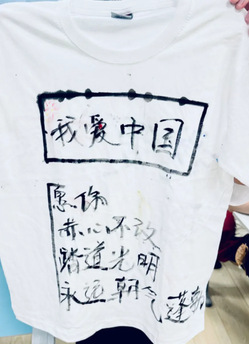 我爱中国
愿你
赤心不改
踏道光明
永远朝气蓬勃